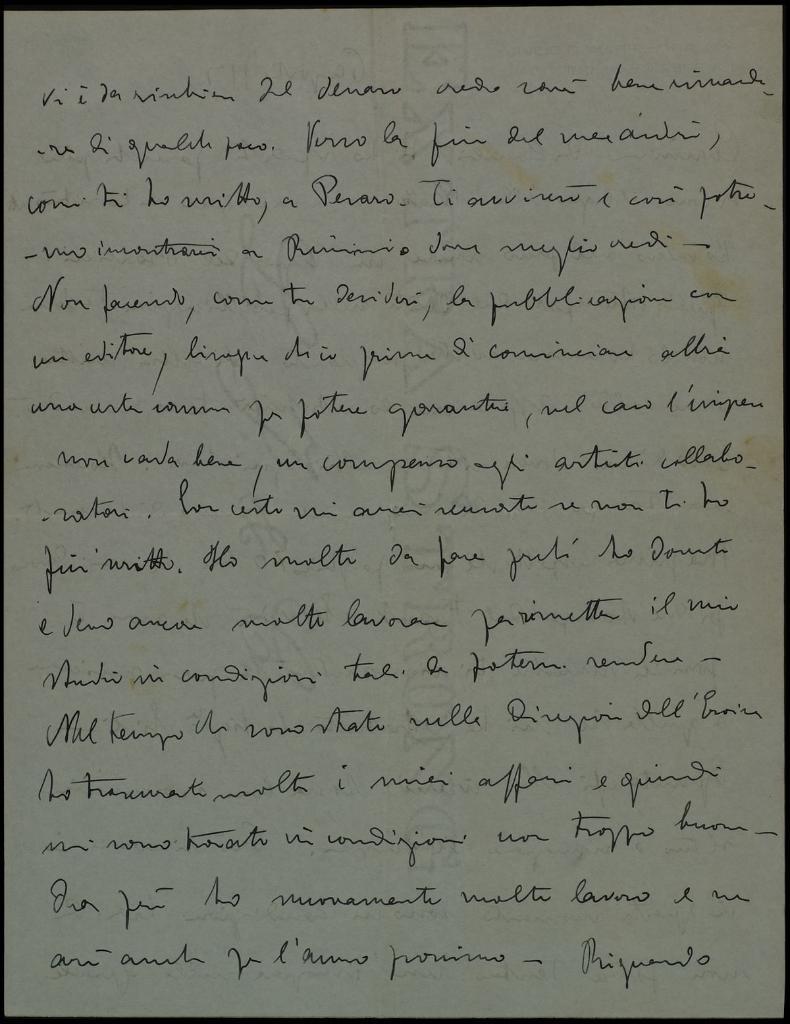 vi è da rischiare del denaro credo sarà bene rimanda-
-re di qualche poco. Verso la fine del mese andrò,
come ti ho scritto, a Pesaro. Ti avviserò e così potre-
-mo incontrarci a Rimini o dove meglio credi —
Non facendo, come tu desideri, la pubblicazione con
un editore, bisogna ch'io prima di cominciare abbia
una certa somma per potere garantire, nel caso l'impresa
non vada bene, un compenso agli artisti collabo-
-ratori. Son certo mi avrai scusato se non ti ho
più scritto. Ho molto da fare perché ho dovuto
e devo ancora molto lavorare per rimettere il mio
studio in condizioni tali da potermi rendere —
Nel tempo che sono stato nella Direzione dell'Eroica
ho trascurato molto i miei affari e quindi
mi sono trovato in condizioni non troppo buone —
Ora però ho nuovamente molto lavoro e ne
avrò anche per l'anno prossimo — Riguardo